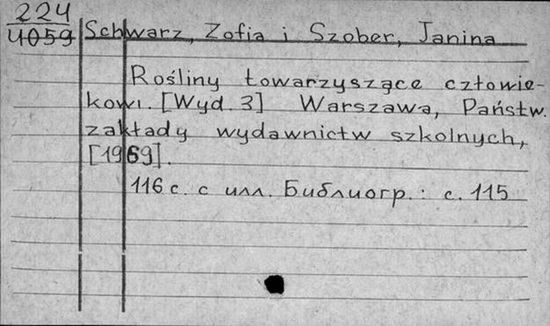 224
4059
Schwarz, Zofia i Szober, Janina
Rośliny towarzyszące człowie-
kowi. [Wyd. 3] Warszawa, Państw.
zakłady wydawnictw szkolnych,
[1969].
116 с. с илл. Библиогр.: с. 115